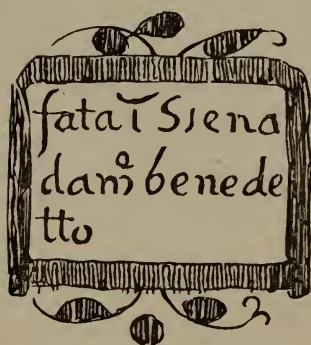 fata ī Siena
da mº benede
tto